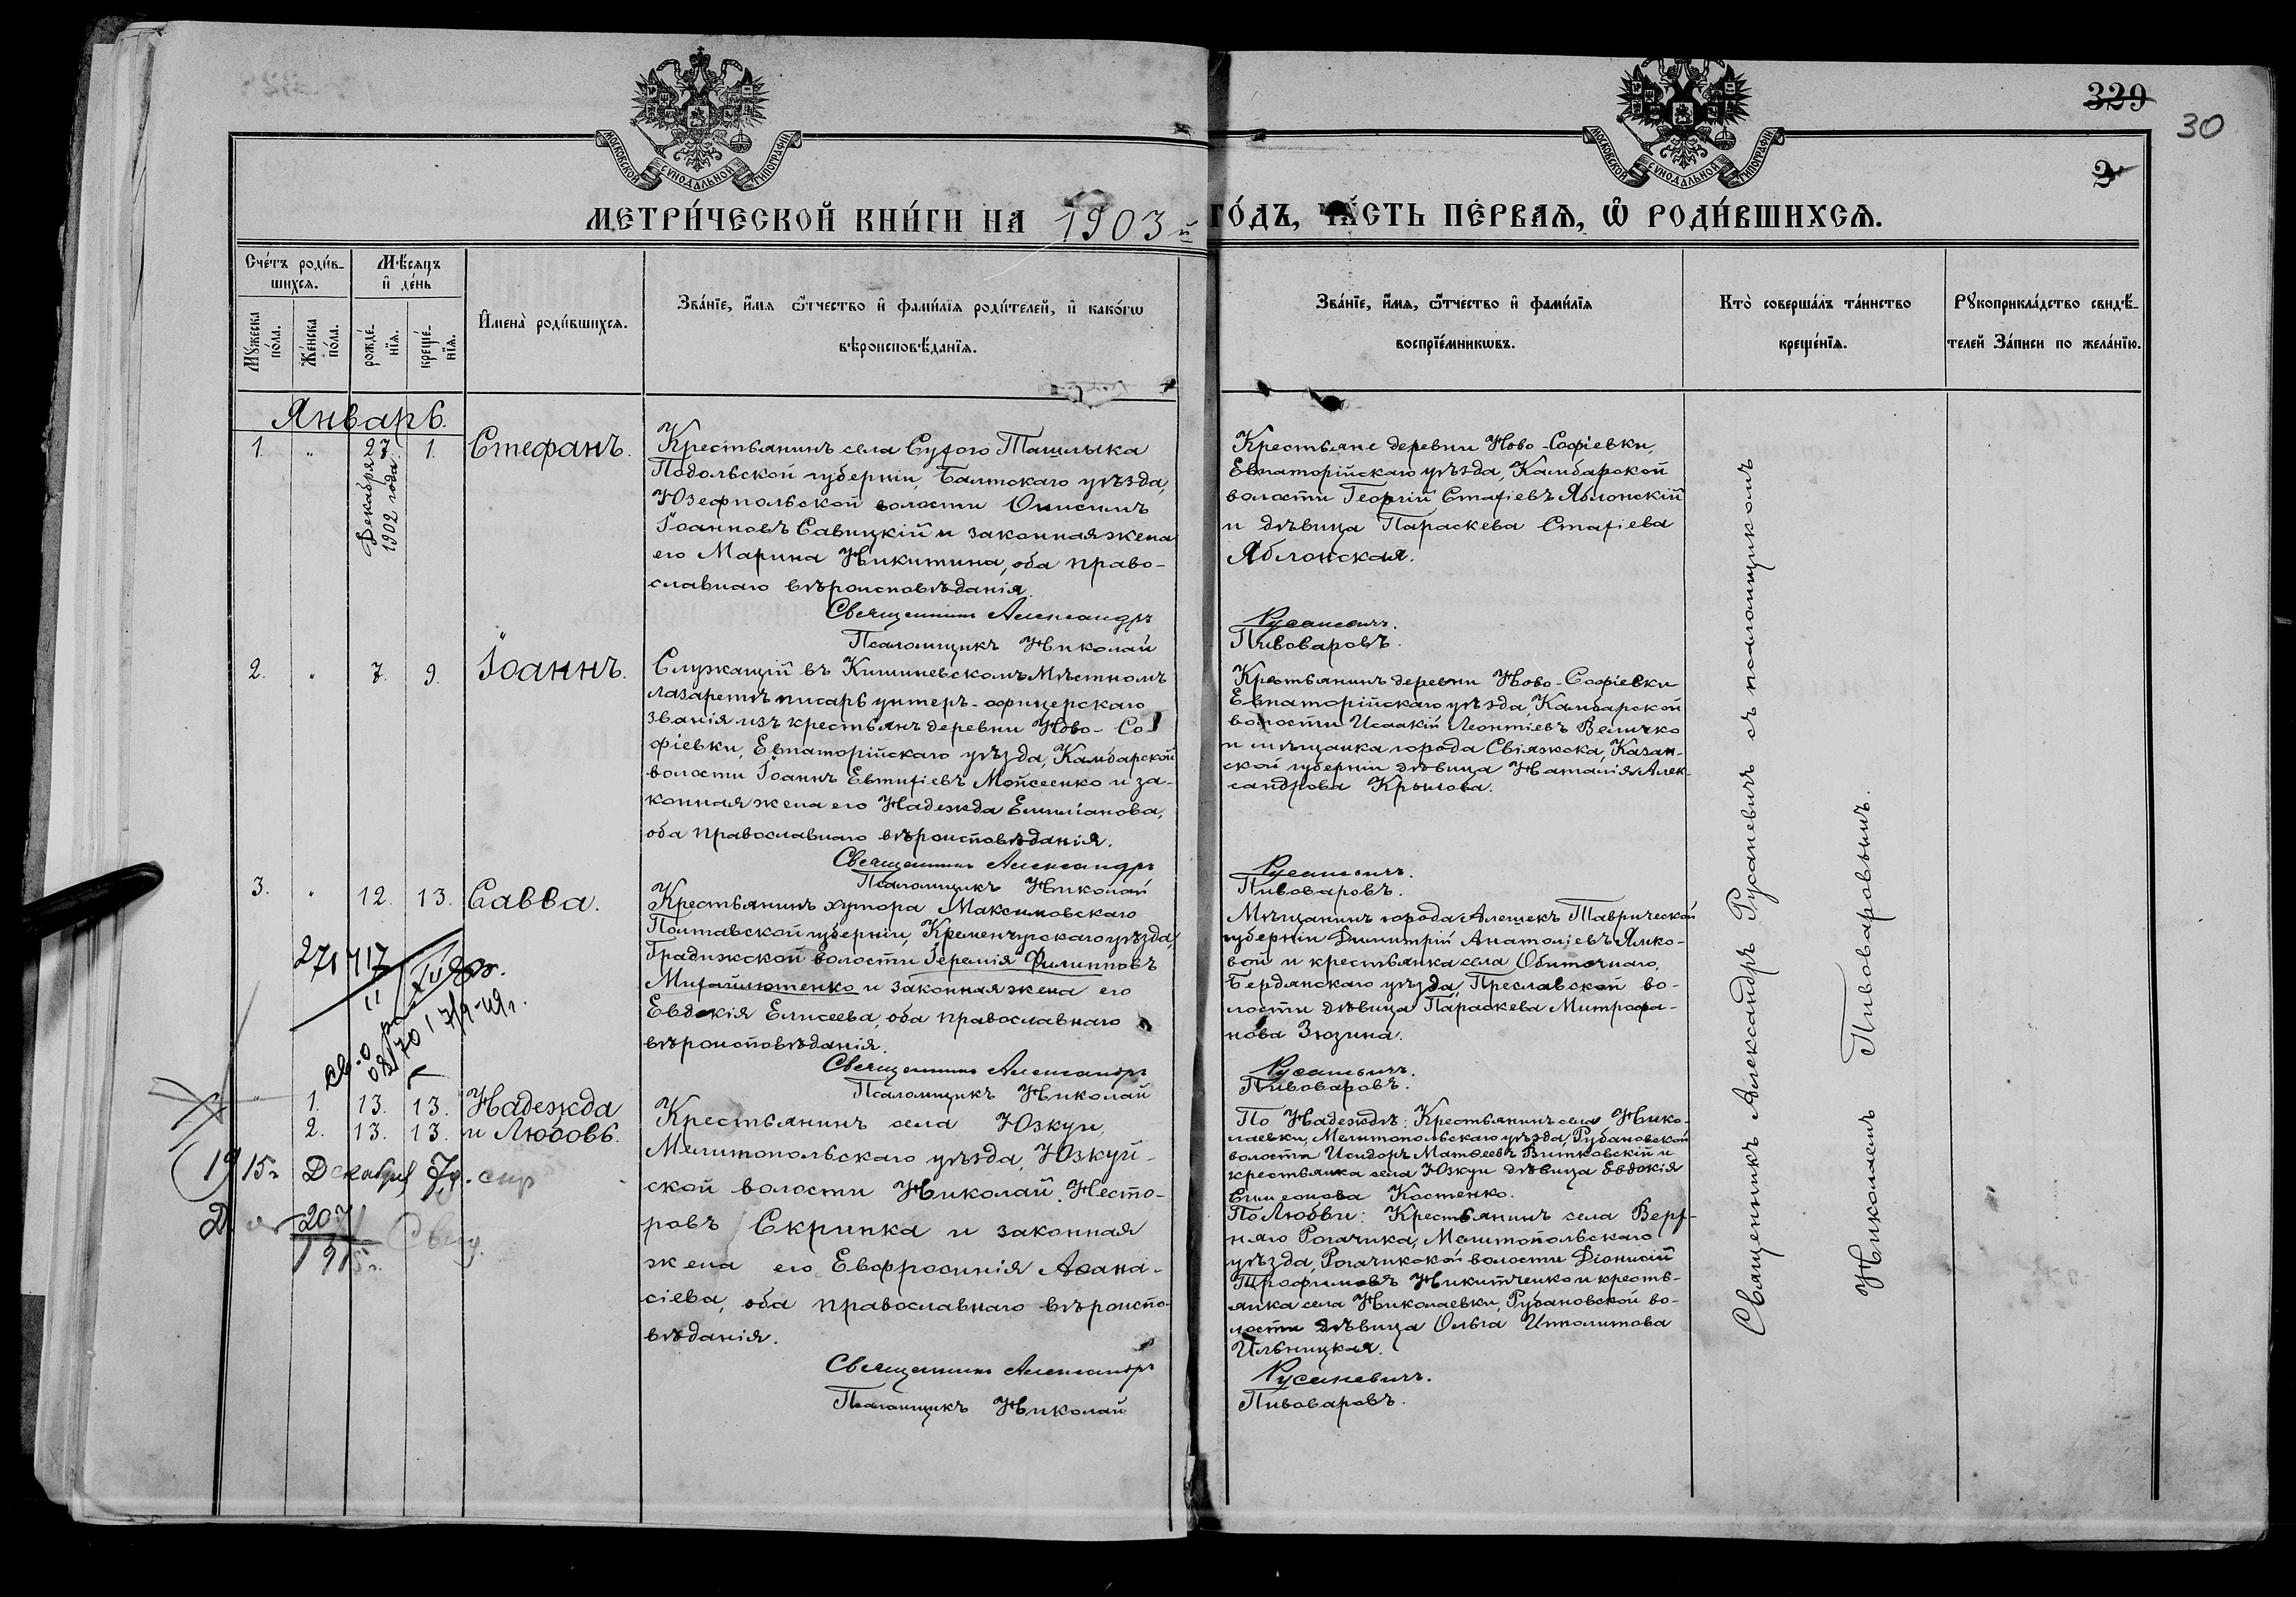 329
30
2
МОСКОВСКОЙ СѴНОДАЛЬНОЙ ТИПОГРАФІИ
МОСКОВСКОЙ СѴНОДАЛЬНОЙ ТИПОГРАФІИ
МЕТРИ́ЧЕСКОЙ КНИ́ГИ НА 1903й ГО́ДЪ, ЧА́СТЬ ПЕ́РВАѦ, Ѽ РОДИ́ВШИХСѦ.
Сче́тъ роди́в-
шихсѧ.
Мꙋ́жеска
по́ла.
Же́нска
по́ла.
Мѣ́сѧцъ
и҆ де́нь
рожде́-
нїѧ.
креще́-
нїѧ.
И҆мена̀ роди́вшихсѧ.
Зва́нїе, и҆́мѧ ѻ҆́тчество и҆ фами́лїѧ роди́телей, и҆ како́гѡ
вѣроисповѣ́данїѧ.
Зва́нїе, и҆́мѧ, ѻ҆́тчество и҆ фами́лїѧ
воспрїе́мникѡвъ.
Кто̀ соверша́лъ та́инство
креще́нїѧ.
Рꙋкоприкла́дство свидѣ́-
телей За́писи по жела́нїю.
Январь.
1. " 27 Декабря 1902 года. 1. Стефанъ.
Крестьянинъ села Сухого Ташлыка
Подольской губерніи, Балтскаго уѣзда,
Юзефпольской волости Онисимъ
Іоанновъ Савицкій и законная жена
его Марина Никитина, оба право-
славнаго вѣроисповѣданія.
Священникъ Александръ
Псаломщикъ Николай
Крестьяне деревни Ново-Софіевки,
Евпаторійскаго уѣзда, Камбарской
волости Георгій Стахіевъ Яблонскій
и дѣвица Параскева Стахіева
Яблонская.
Русаневичъ.
Пивоваровъ.
2. " 7. 9. Іоаннъ.
Служащій въ Кишиневскомъ Мѣстномъ
лазаретѣ писарь унтеръ-офицерскаго
званія изъ крестьянъ деревни Ново-Со
фіевки, Евпаторійскаго уѣзда, Камбарской
волости Іоаннъ Евтихіевъ Мойсеенко и за-
конная жена его Надежда Емиліанова,
оба православнаго вѣроисповѣданія.
Священникъ Александръ
Псаломщикъ Николай
Крестьянинъ деревни Ново-Софіевки
Евпаторійскаго уѣзда, Камбарской
волости Исаакій Леонтіевъ Величко
и мѣщанка города Свіяжска, Казан-
ской губерніи дѣвица Наталія Алек-
сандрова Крылова.
Русаневичъ.
Пивоваровъ.
3. " 12. 13. Савва.
Крестьянинъ хутора Максимовскаго
Полтавской губерніи, Кременчугскаго уѣзда,
Градижской волости Іеремія Филипповъ
Михайлютенко и законная жена его
Евдокія Елисеева, оба православнаго
вѣроисповѣданія.
Священникъ Александръ
Псаломщикъ Николай
Мѣщанинъ города Алешекъ Таврической
губерніи Димитрій Анатоліевъ Ялко-
вой и крестьянка села Обиточнаго,
Бердянскаго уѣзда, Преславской во-
лости дѣвица Параскева Митрофа-
нова Зюзина.
Русаневичъ.
Пивоваровъ.
" 1. 13. 13. Надежда
2. 13. 13. и Любовь.
1915г Декабря
Крестьянинъ села Юзкуи,
Мелитопольскаго уѣзда, Юзкуй-
ской волости Николай Несто-
ровъ Скрипка и законная
жена его Евфросинія Аѳана-
сіева, оба православнаго вѣроиспо-
вѣданія.
Священникъ Александръ
Псаломщикъ Николай
По Надеждѣ: Крестьянинъ села Нико-
лаевки, Мелитопольскаго уѣзда, Рубановской
волости Исидоръ Матѳеевъ Витковскій и
крестьянка села Юзкуи дѣвица Евдокія
Симеонова Костенко.
По Любви: Крестьянинъ села Верх-
няго Рогачика, Мелитопольскаго
уѣзда, Рогачикской волости Діонисій
Трофимовъ Никитченко и кресть-
янка села Николаевки, Рубановской во-
лости дѣвица Ольга Ипполитова
Ильницкая.
Русаневичъ.
Пивоваровъ.
Священникъ Александръ Русаневичъ съ псаломщикомъ
Николаемъ Пивоваровымъ.